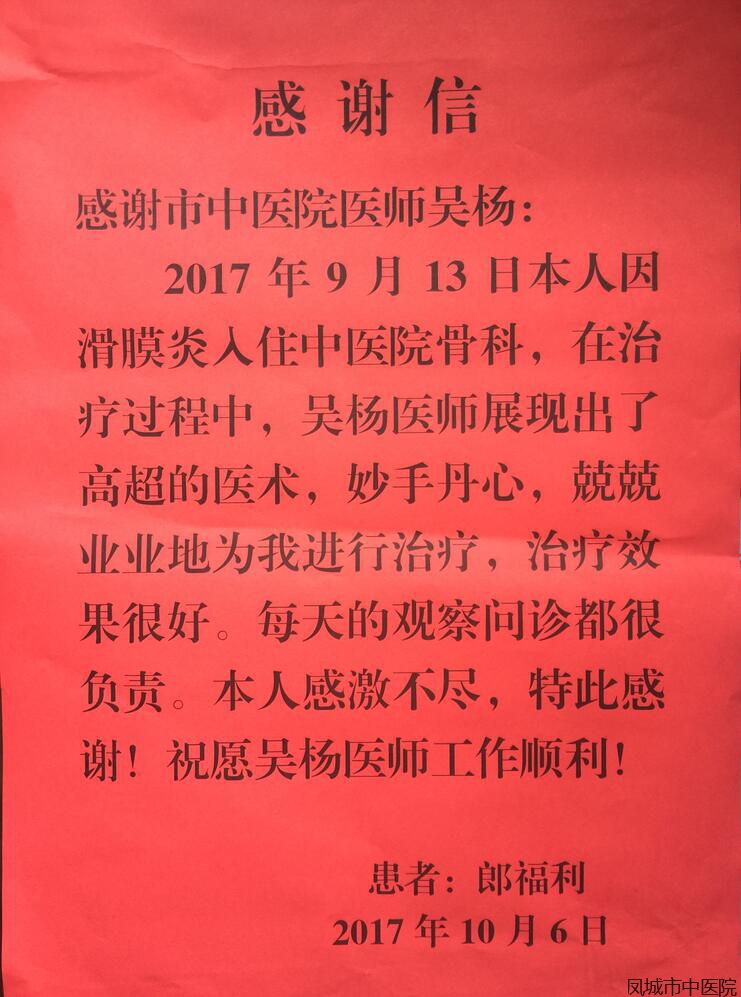 感谢信
感谢市中医院医师吴杨：
2017 年 9 月 13 日本人因
滑膜炎入住中医院骨科，在治
疗过程中，吴杨医师展现出了
高超的医术，妙手丹心，兢兢
业业地为我进行治疗，治疗效
果很好。每天的观察问诊都很
负责。本人感激不尽，特此感
谢！祝愿吴杨医师工作顺利！
患者：郎福利
2017 年 10 月 6 日
凤城市中医院